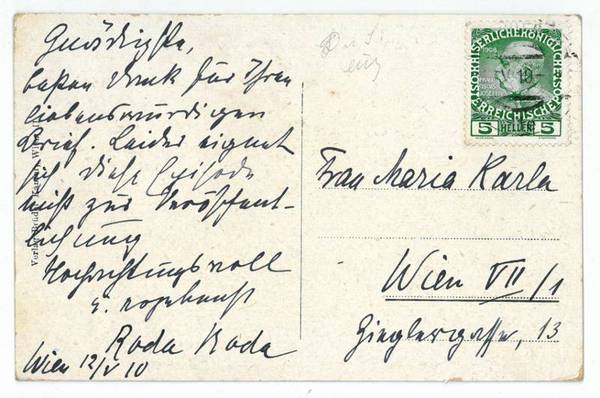 Gnädigste,
besten Dank für Ihren
liebenswürdigen
Brief. Leider eignet
sich diese Episode
nicht zur Veröffent-
lichung
Hochachtungsvoll
Roda Roda
Wien 12/V 10
KAISERLICHE KÖNIGLICHE
1908
ÖSTERREICHISCHE POST
5 HELLER 5
Frau Maria Karla
Wien VII/1
Zieglergasse, 13